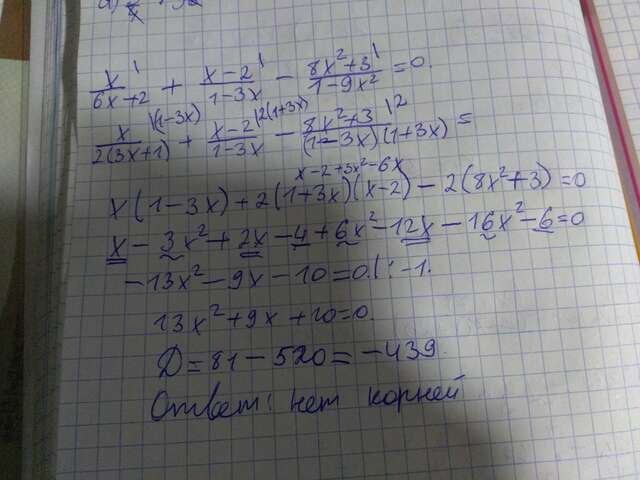 x/(6x+2) + (x-2)/(1-3x) - (8x²+3)/(1-9x²) = 0.
x/(2(3x+1)) |(1-3x) + (x-2)/(1-3x) |2(1+3x) - (8x²+3)/((1-3x)(1+3x)) |2 =
x-2+3x²-6x
x(1-3x)+2(1+3x)(x-2)-2(8x²+3)=0
x-3x²+2x-4+6x²-12x-16x²-6=0
-13x²-9x-10=0.|:-1.
13x²+9x+10=0.
D=81-520=-439.
Ответ: нет корней